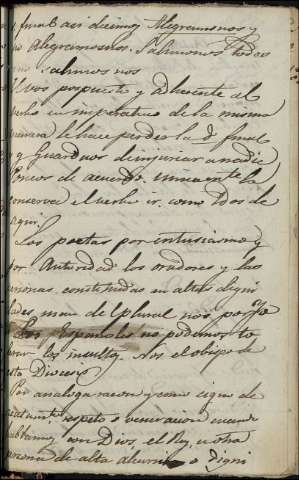 final así decimos Alegrasmonos y
no Alegramosnos: Salimonos todos
no: salimos nos
Vos pospuesto y adherente al
verbo en imperativo de la misma
manera le hace perder la d final
y Guardaos de injuriar a nadie
Poneos de acuerdo. unicamente la
conserva el verbo ir. como Idos de
aqui.
Los poetas por intusiasmo y
por Autoridad los oradores y las
personas constituidas en altas digni
dades, usan de plural nos por Yo
Los Españoles no podemos to
lerar los insultos. Nos el obispo de
esta Diocesis
Por analoga razon y como signo de
respeto o veneracion cuando
hablamos con Dios, el Rey, u otra
persona de alta alcurnia o digni